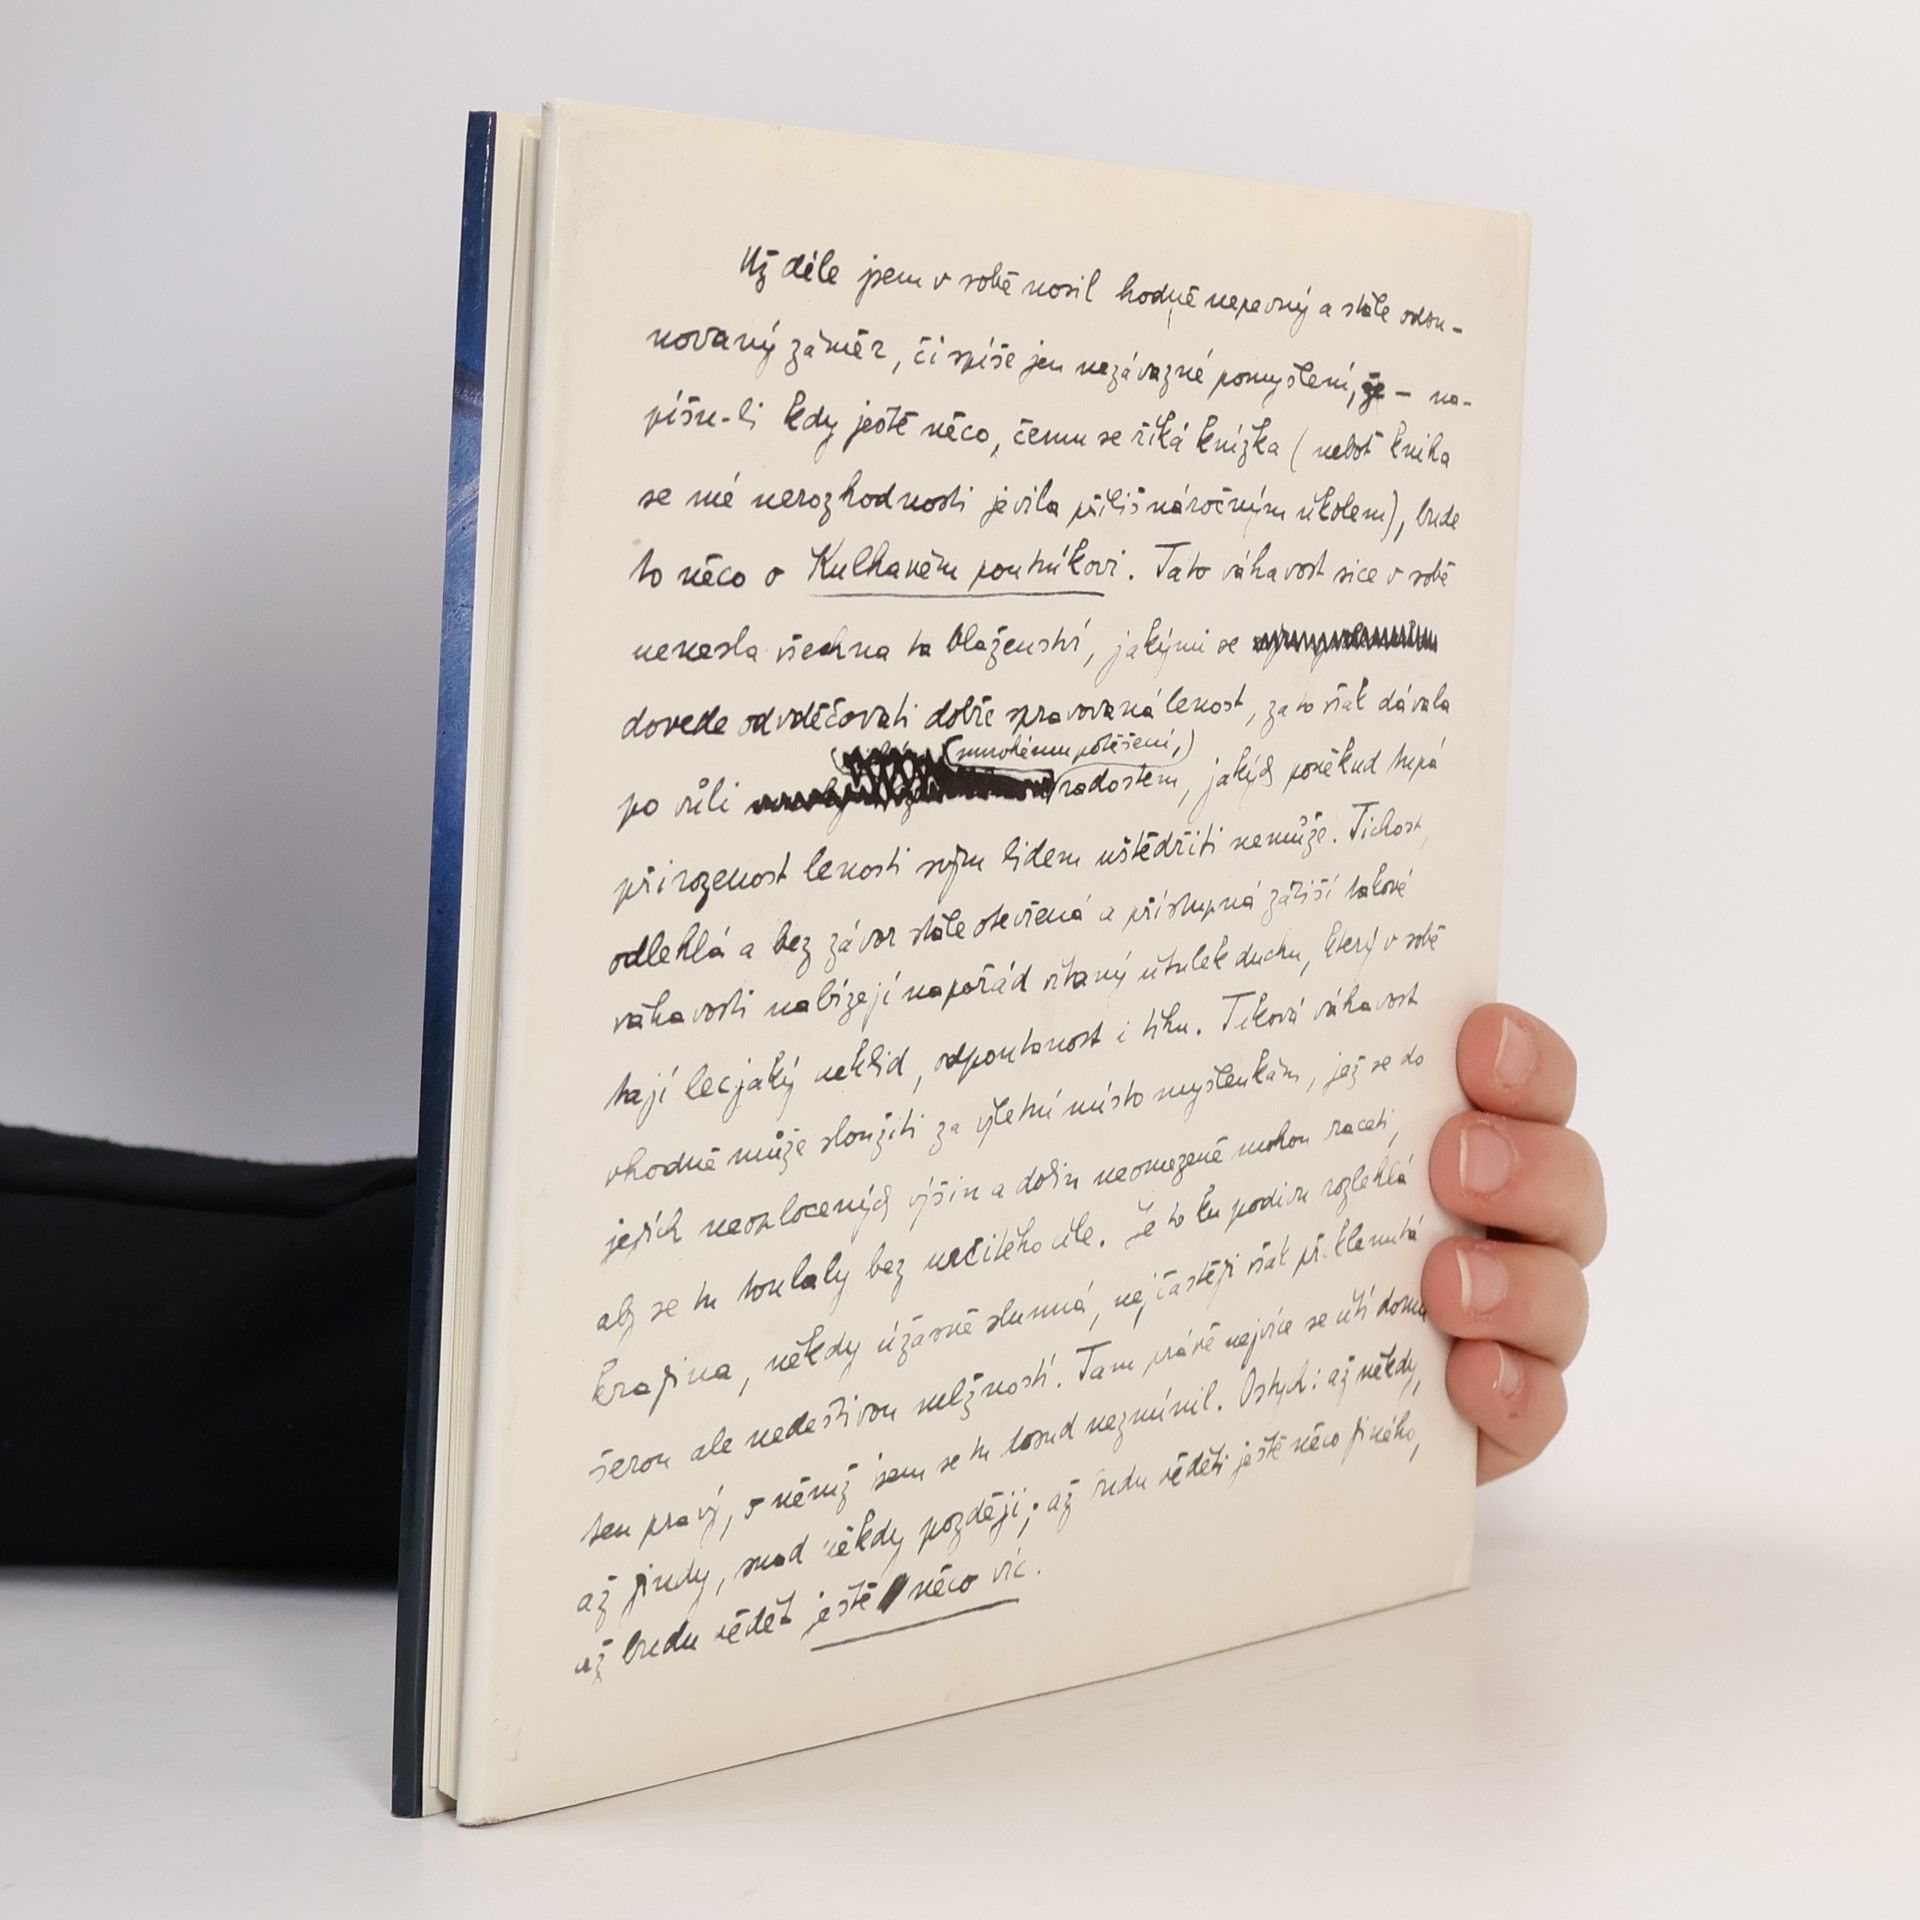 Už déle jsem v sobě nosil hodně nepevný a stále odsu-
novaný záměr, či spíše jen nezávazné pomyšlení, že – na-
píšu-li kdy ještě něco, čemu se říká knížka (neboť kniha
se mé nerozhodnosti jevila příliš náročným úkolem), bude
to něco o Kulhavém poutníkovi. Tato váhavost sice v sobě
nenesla všechna ta blaženství, jakými se
dovede odvděčovati dobře spravovaná lenost, zato však dávala
(mnohému potěšení,)
po vůli radostem, jakých poněkud tupá
přirozenost lenosti svým lidem uštědřiti nemůže. Tichost,
odlehlá a bez závor stále otevřená a přístupná zátiší takové
váhavosti nabízejí napořád vítaný útulek duchu, který v sobě
tají lecjaký neklid, odpoutanost i tíhu. Taková váhavost
vhodně může sloužiti za výletní místo myšlenkám, jež se do
jejích neoplocených výšin a dolin neomezeně mohou raceti,
aby se tu toulaly bez určitého cíle. Je to ku podivu rozlehlá
krajina, někdy úžasně slunná, nejčastěji však přiklenutá
šerou ale nedeštivou mlžností. Tam právě nejvíce se cítí doma
ten pravý, o němž jsem se tu dosud nezmínil. Ostych: až někdy,
až jindy, snad někdy později; až budu věděti ještě něco jiného,
až budu vědět ještě něco víc.